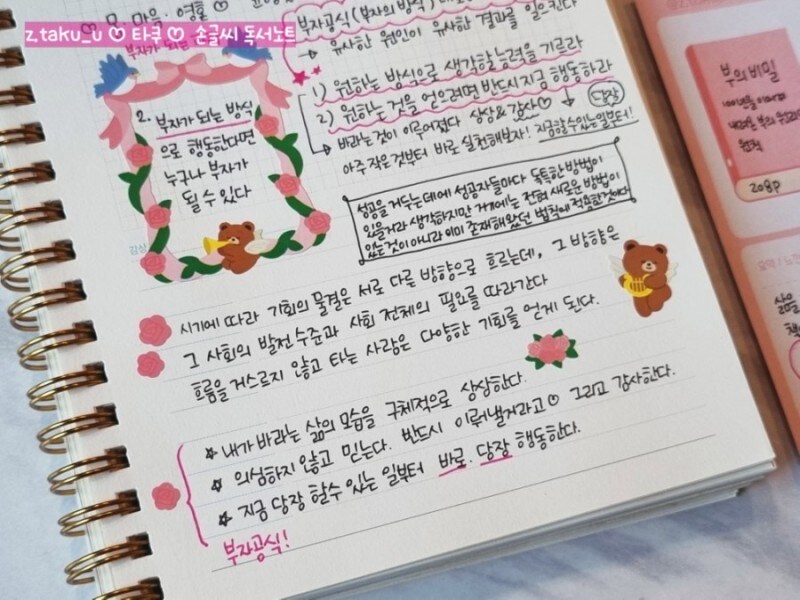 몸. 마음. 영혼
z.taku_u ♡ 타쿠 ♡ 손글씨 독서노트
부자가 되는
부자공식 (부자의 방식)
→ 유사한 원인이 유사한 결과를 일으킨다
1) 원하는 방식으로 생각할 능력을 기르라
2) 원하는 것을 얻으려면 반드시 지금 행동하라
→ 바라는 것이 이루어졌다 상상&감사♡ ↓ 당장
아주 작은것부터 바로 실천해보자! 지금할수있는일부터!
2. 부자가 되는 방식
으로 행동한다면
누구나 부자가
될 수 있다
감상
성공을 거두는데에 성공자들마다 독특한 방법이
있을거라 생각하지만 거기에는 전혀 새로운 방법이
있는 것이 아니라 이미 존재해왔던 법칙에 적용한것이다
시기에 따라 기회의 물결은 서로 다른 방향으로 흐르는데, 그 방향은
그 사회의 발전 수준과 사회 전체의 필요를 따라간다
흐름을 거스르지 않고 타는 사람은 다양한 기회를 얻게 된다.
☆ 내가 바라는 삶의 모습을 구체적으로 상상한다.
☆ 의심하지 않고 믿는다. 반드시 이뤄낼거라고♡ 그리고 감사한다.
☆ 지금 당장 할수 있는 일부터 바로. 당장 행동한다.
부자공식!
부의 비밀
부의
원칙
208p
삶을
책